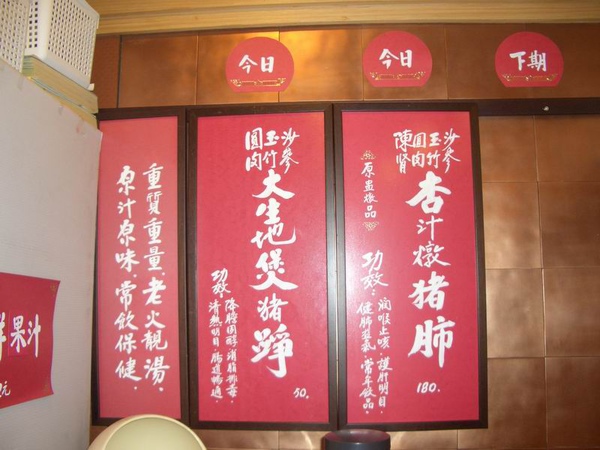 今日
今日
下期
沙參
玉竹
圓肉
陳腎
杏汁燉猪肺
原盅燉品
功效：
潤喉止咳，護肝明目，
健肺益氣，常年飲品。
180.
沙參
玉竹
圓肉
大生地煲猪踭
功效
降膽固醇，消脂排毒，
清熱明目，腸道暢通。
50.
重質重量，老火靚湯，
原汁原味，常飲保健。
果汁
元